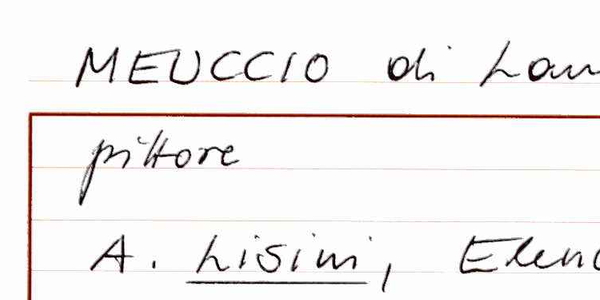 MEUCCIO di Lan
pittore
A. Lisini, Elenc